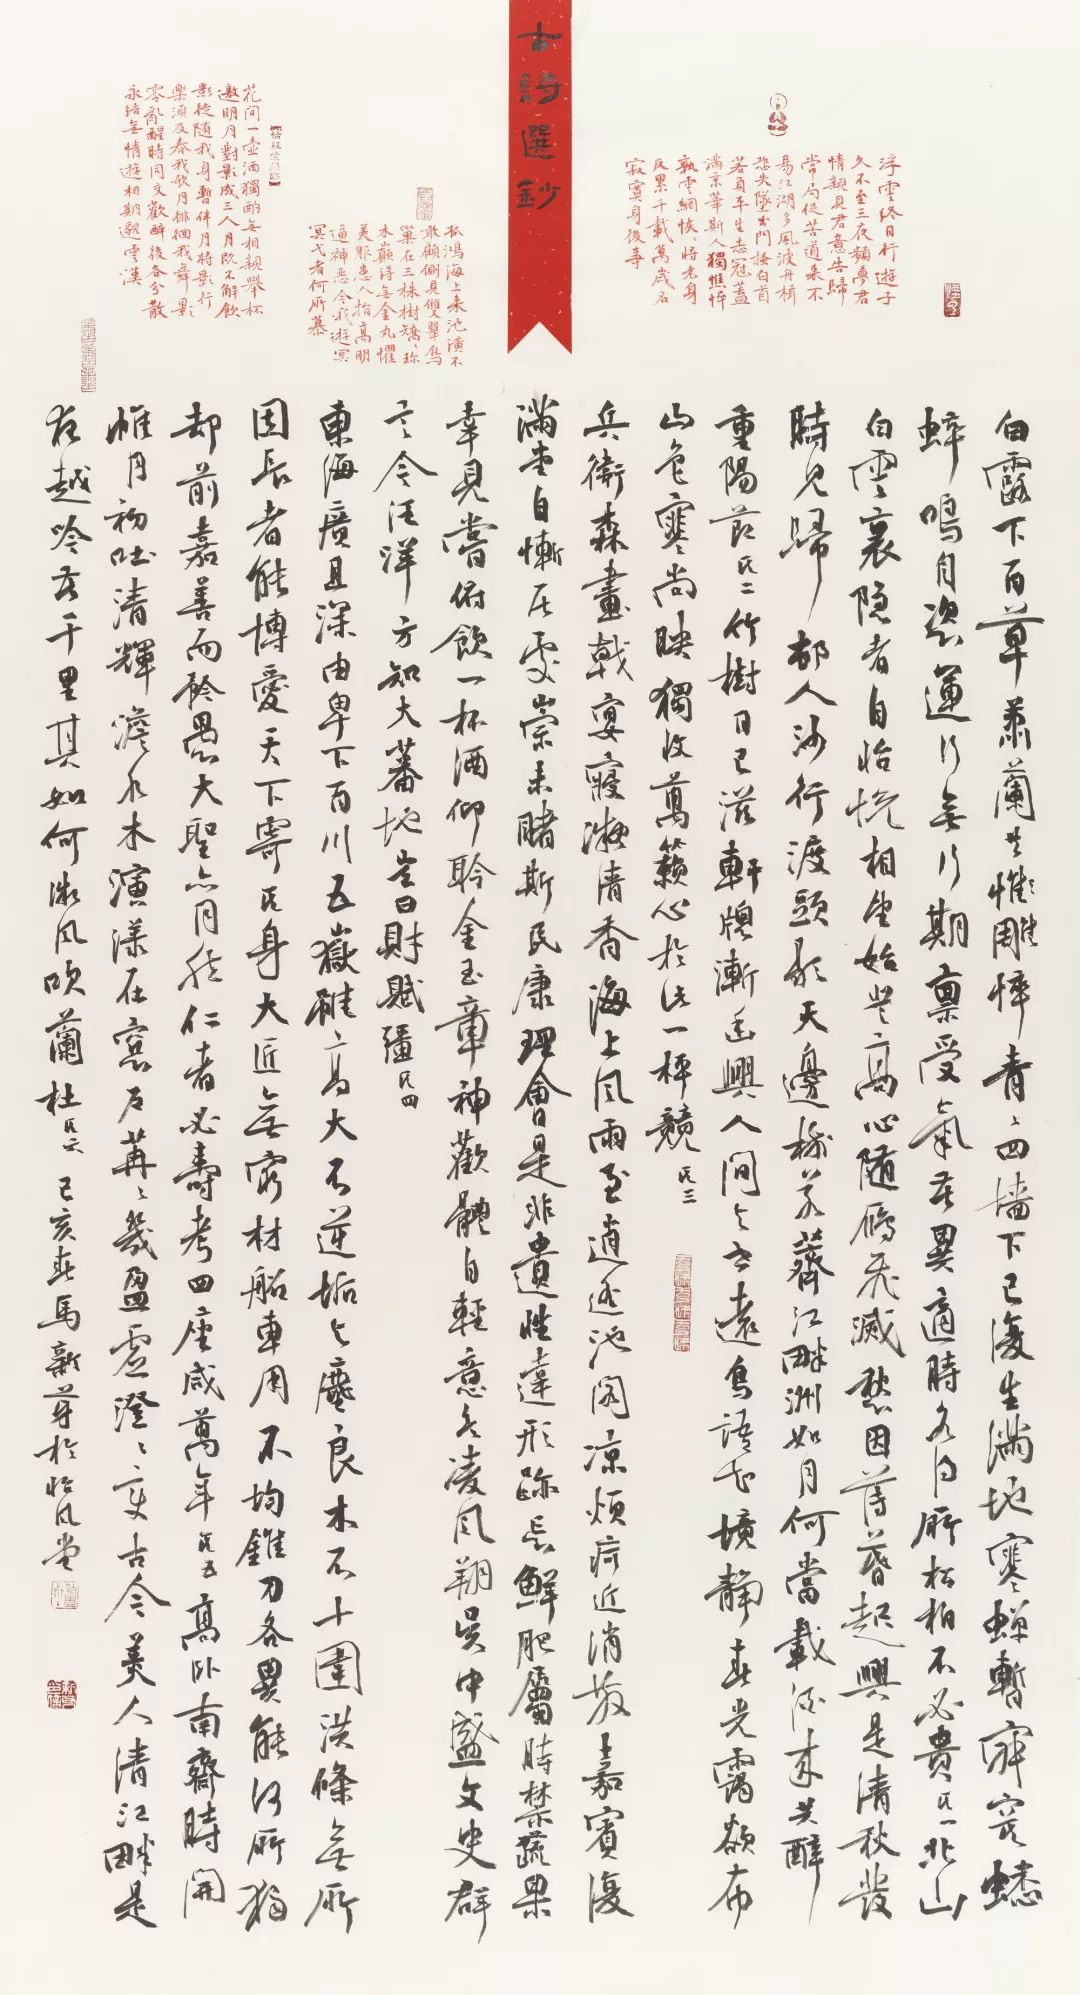 古詩選鈔
浮雲終日行遊子
久不至三夜頻夢君
情親見君意告歸
常局促苦道來不
易江湖多風波舟楫
恐失墜出門搔白首
若負平生志冠蓋
滿京華斯人獨憔悴
孰雲網恢、將老身
反累千載萬歲名
寂寞身後事
孤鴻海上來池潢不
敢顧側見雙翠鳥
巢在三株樹矯、珍
木巔得無金丸懼
美服患人指高明
逼神惡今我遊冥
冥弋者何所慕
花間一壺酒獨酌無相親舉杯
邀明月對影成三人月既不解飲
影徒隨我身暫伴月將影行
樂須及春我歌月徘徊我舞影
零亂醒時同交歡醉後各分散
永結無情遊相期邈雲漢
白露下百草蕭蘭共憔雕悴青、四墻下已復生滿地寒蟬暫寂寞蟋
蟀鳴自恣運行無行期稟受氣苦異適時各得所松柏不必貴其一北山
白雲裏隱者自怡悅相望始登高心隨雁飛滅愁因薄暮起興是清秋發
時見歸村人沙行渡頭歇天邊樹若薺江畔洲如月何當載酒來共醉
重陽節其二竹樹日已滋軒牕漸幽興人間與世遠鳥語知境靜春光靄欲布
山色寒尚映獨收萬籟心於此一枰競其三
兵衛森畫戟宴寢凝清香海上風雨至逍遙池閣涼煩疴近消散嘉賓復
滿堂自慚居處崇未睹斯民康理會是非遣性達形跡忘鮮肥屬時禁蔬果
幸見嘗俯飲一杯酒仰聆金玉章神歡體自輕意欲凌風翔吳中盛文史群
彥今汪洋方知大藩地豈曰財賦彊其四
東海廣且深由卑下百川五嶽雖、高大不逆垢與塵良木不十圍洪條無所
因長者能博愛天下寄其身大匠無窮材船車用不均錐刀各異能何所獨
却前嘉善而矜愚大聖亦同然仁者必壽考四座咸萬年其五高臥南齋時開
帷月初吐清輝澹水木演漾在窗戶苒、幾盈虛澄、變古今美人清江畔是
夜越吟苦千里其如何微風吹蘭杜其六 己亥春馬新芽於怡風堂